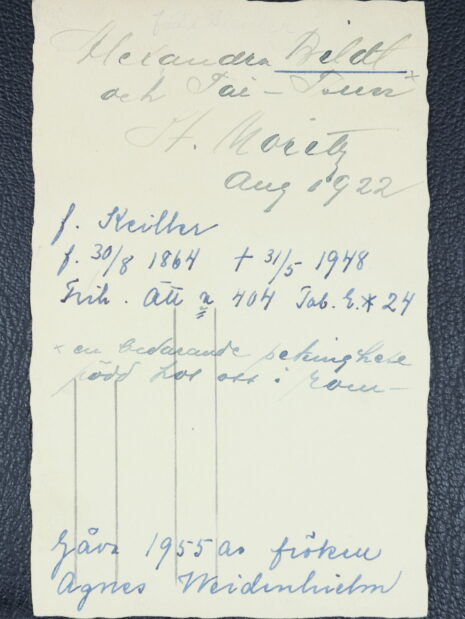 Alexandra Bildt
och Tai-Tsun ×
St. Moritz
Aug 1922
f. Keiller
f. 30/8 1864 † 31/5 1948
Frih. Ätt n 404 Tab. 24
× en bedårande pekinghese
född hos oss i Rom-
Gåva 1955 av fröken
Agnes Weidenhielm